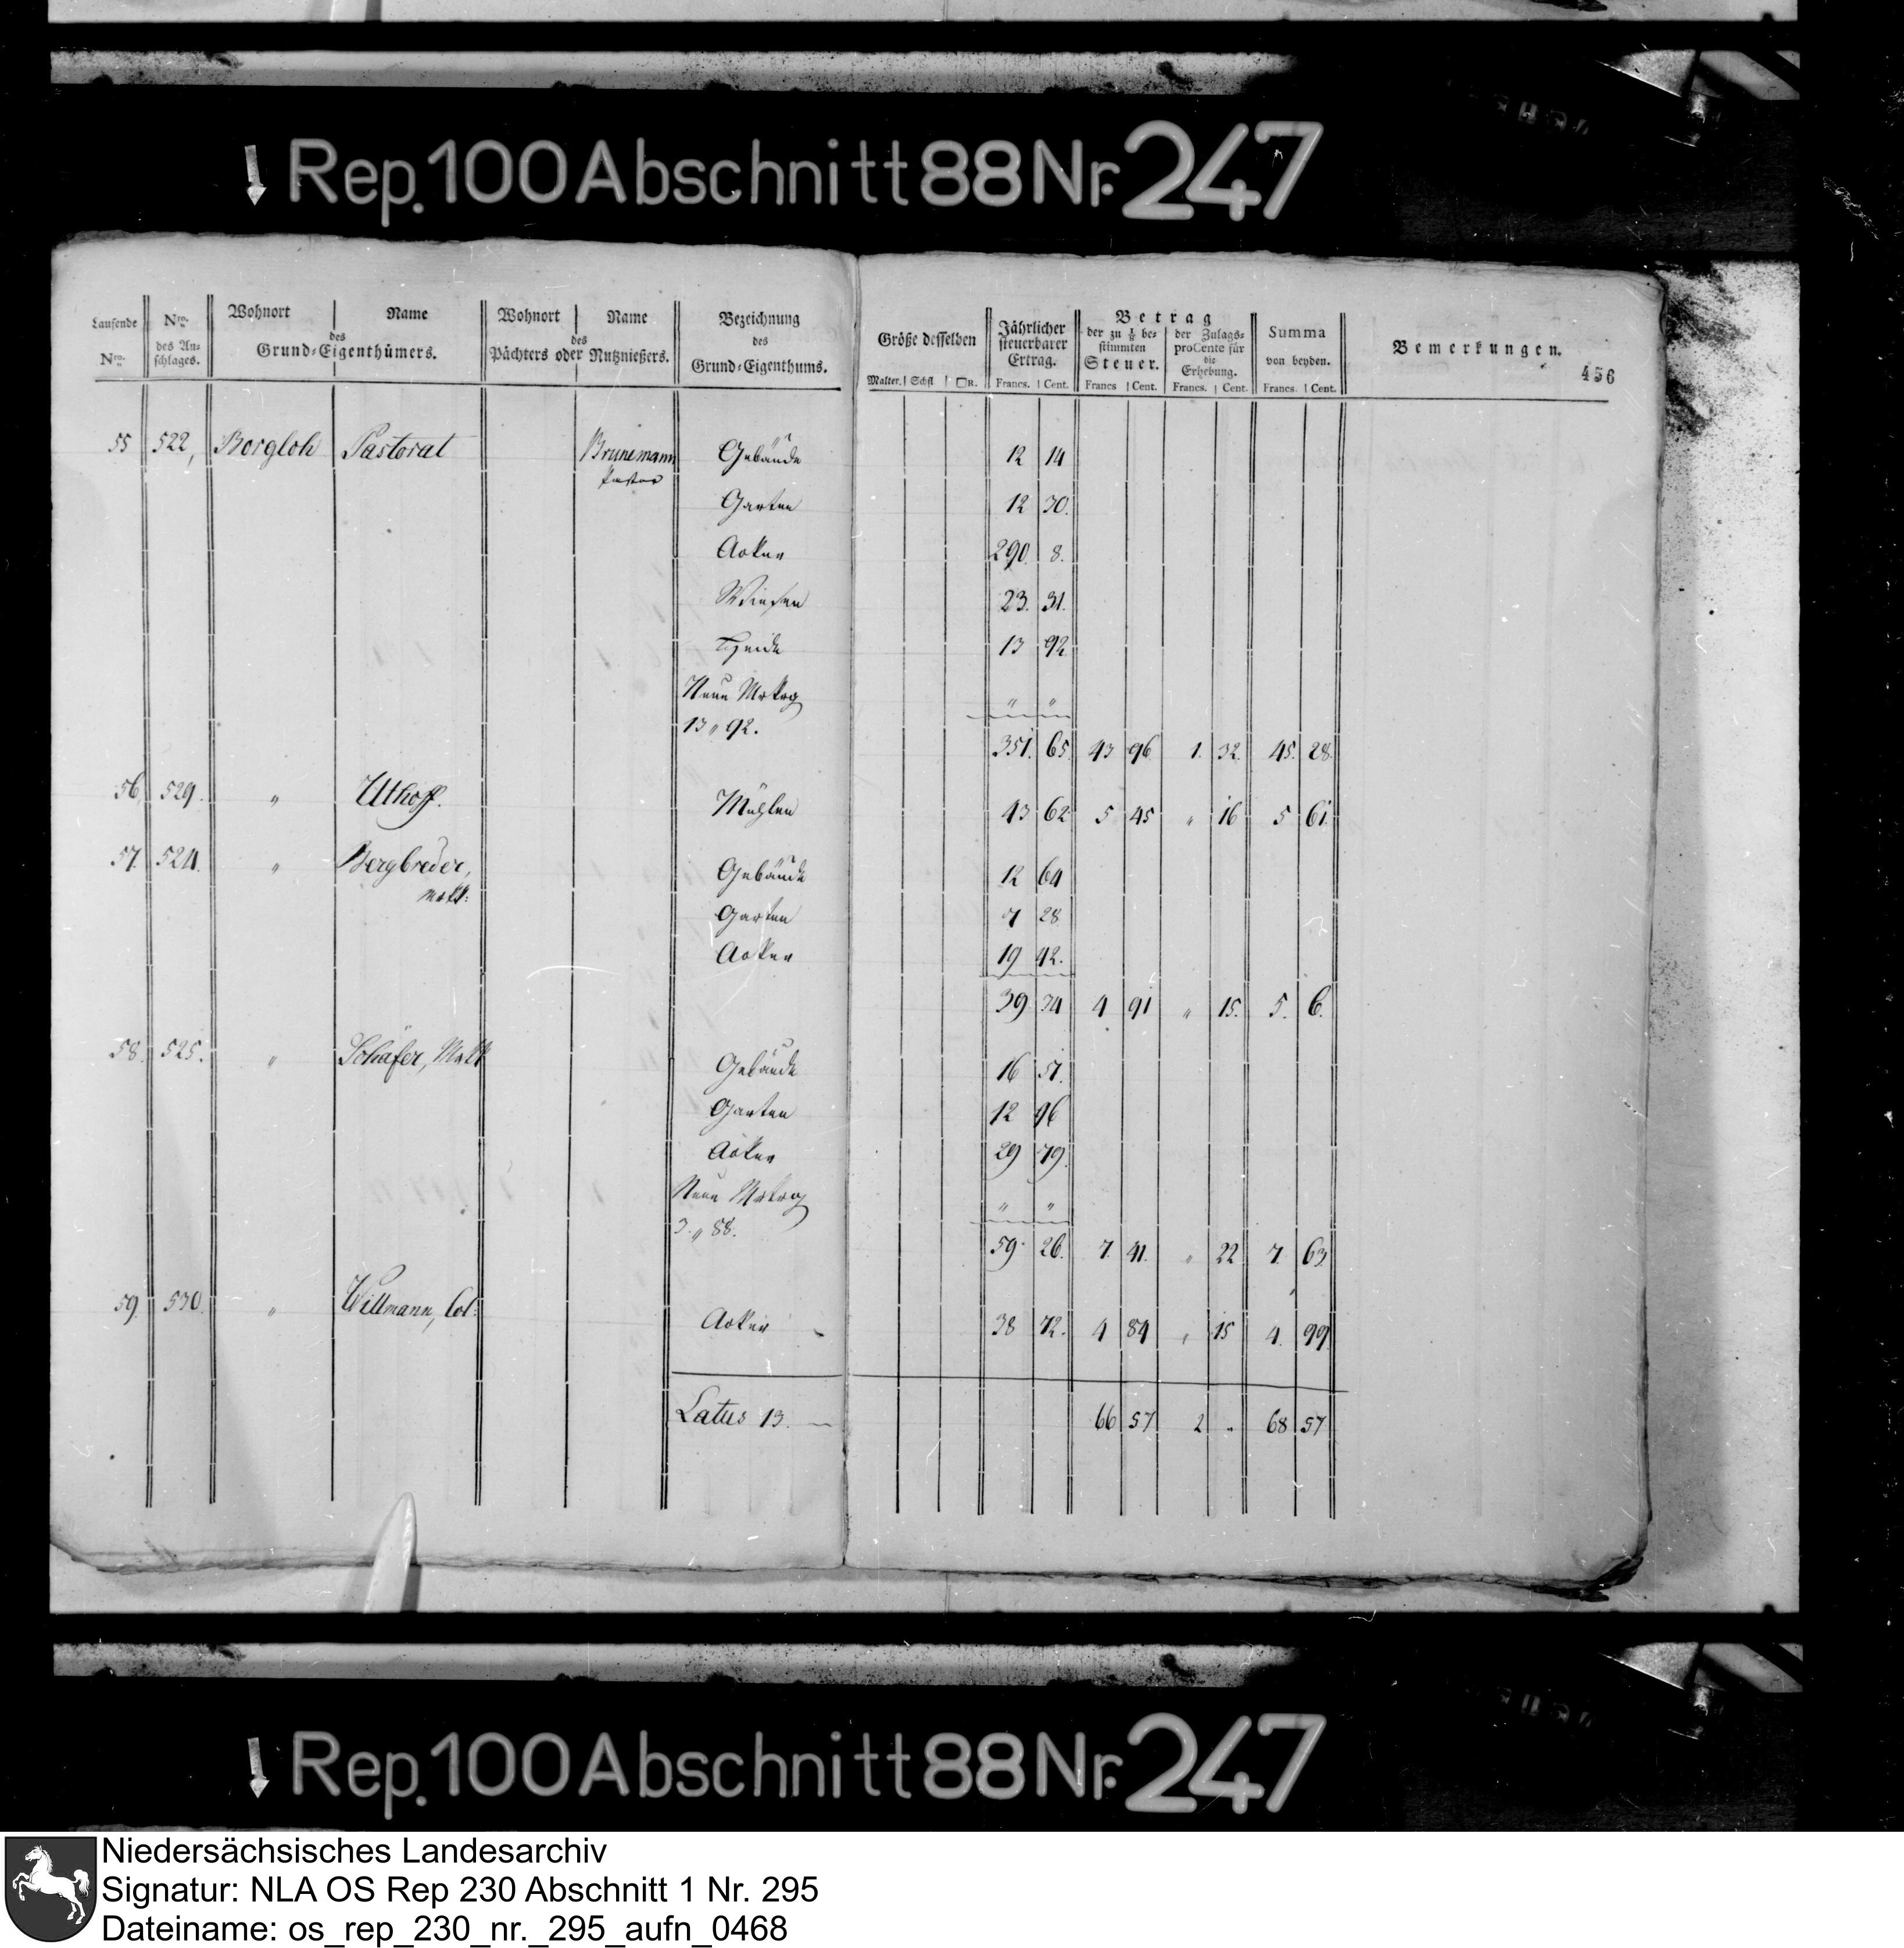 Rep. 100 Abschnitt 88 Nr. 247
Laufende Nro. | Nro. des An-schlages. | Wohnort | Name des Grund-Eigenthümers. | Wohnort | Name des Pächters oder Nutznießers. | Bezeichnung des Grund-Eigenthums. | Größe desselben Malter. Schfl □R. | Jährlicher steuerbarer Ertrag. Francs. Cent. | Betrag der zu ⅛ be-stimmten Steuer. Francs Cent. | der Zulags-proCente für die Erhebung. Francs. Cent. | Summa von beyden. Francs. Cent. | Bemerkungen.
456
55 522, Borgloh Pastorat Brunemann Gebäude 12 14
Pastor
Garten 12 30.
Acker 290 8.
Wiesen 23. 31.
Heide 13 92
Neue Mrkrg " "
13 " 92.
351. 65. 43 96 1. 32. 45. 28.
56 529. " Uthoff. Mühlen 43 62 5 45 " 16 5 61
57. 524. " Bergbreder, Gebäude 12 64
Mrkk:
Garten 7 28
Acker 19 42.
39. 34 4 91 " 15. 5. 6.
58. 525. " Schäfer, Mrkk Gebäude 16 51.
Garten 12 96
Acker 29 79.
Neue Mrkrg " "
3. " 88.
59. 26. 7. 41. " 22 7. 63
59. 530. " Willmann, Col: Acker 38 72. 4 84 " 15 4. 99
Latus 13. 66 57 2 " 68 57
Rep. 100 Abschnitt 88 Nr. 247
Niedersächsisches Landesarchiv
Signatur: NLA OS Rep 230 Abschnitt 1 Nr. 295
Dateiname: os_rep_230_nr._295_aufn_0468